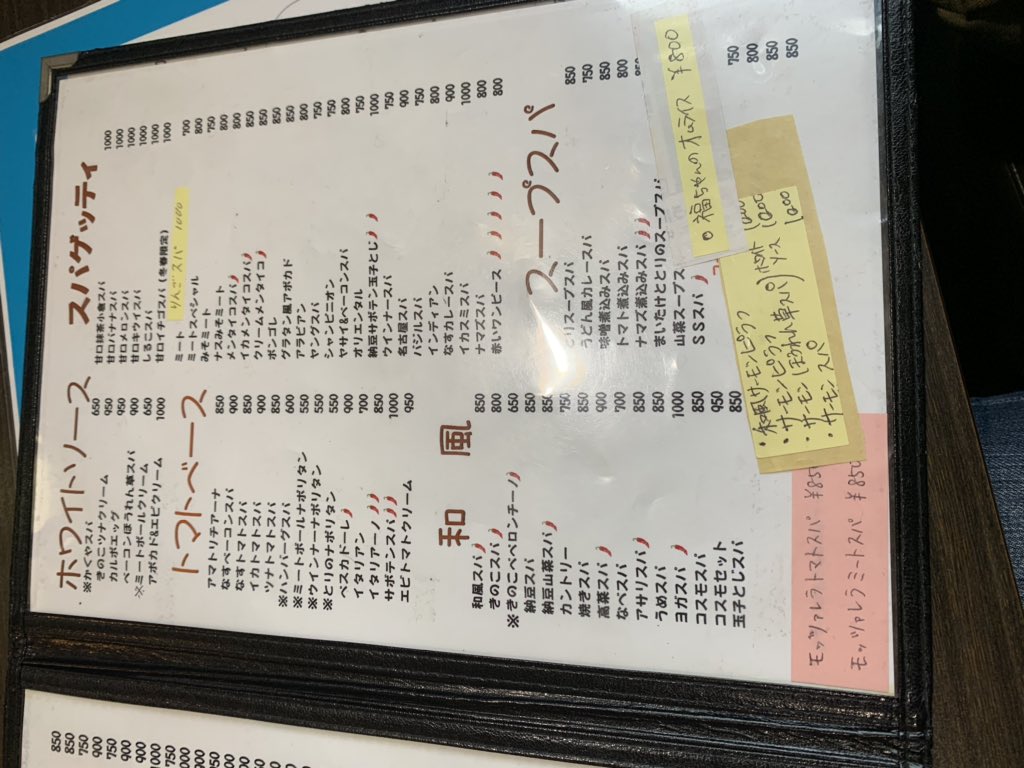 ホワイトソース
※かぐやスパ 650
きのこツナクリーム 950
カルボエッグ 950
ベーコンほうれん草スパ 900
※ミートボールクリーム 650
アボカド&エビクリーム 1000
トマトベース
アマトリチアーナ 850
なすベーコンスパ 900
なすトマトスパ 850
イカトマトスパ 900
ツナトマトスパ 850
※ハンバーグスパ 600
※ミートボールナポリタン 550
※ウインナーナポリタン 550
※とりのナポリタン 550
ペスカドーレ 900
イタリアン 700
イタリアーノ 850
サボテンスパ 1000
エビトマトクリーム 950
和 風
和風スパ 850
きのこスパ 800
※きのこペペロンチーノ 650
納豆スパ 850
納豆山菜スパ 850
カントリー 750
焼きスパ 850
高菜スパ 900
なべスパ 700
アサリスパ 850
うめスパ 850
ヨガスパ 1000
コスモスパ 850
コスモセット 950
玉子とじスパ 850
モッツァレラトマトスパ ¥850
モッツァレラミートスパ ¥850
スパゲッティ
甘口抹茶小倉スパ 1000
甘口バナナスパ 1000
甘口メロンスパ 1000
甘口キウイスパ 1000
しるこスパ 1000
甘口イチゴスパ(冬春限定) 1000
りんごスパ 1000
ミート 700
ミートスペシャル 800
みそミート 750
ナスみそミート 800
メンタイコスパ 800
イカメンタイコスパ 850
クリームメンタイコ 850
ボンゴレ 850
グラタン風アボカド 850
アラビアン 800
ヤングスパ 750
シャンピニオン 750
ヤサイ&ベーコンスパ 800
オリエンタル 750
納豆サボテン玉子とじ 1000
ウインナースパ 750
名古屋スパ 900
バジルスパ 750
インディアン 800
なすカレースパ 900
イカスミスパ 1000
ナマズスパ 800
赤いワンピース 800
スープスパ
とりスープスパ 850
うどん風カレースパ 750
味噌煮込みスパ 850
トマト煮込みスパ 850
ナマズ煮込みスパ 800
まいたけととりのスープスパ
山菜スープスパ
SSスパ
750
800
850
850
福ちゃんのオムライス ¥800
・和風サーモンピラフ 1000
・サーモンピラフ 1000
・サーモンほうれん草スパ 1000
・サーモンスパ
850
850
750
900
750
900